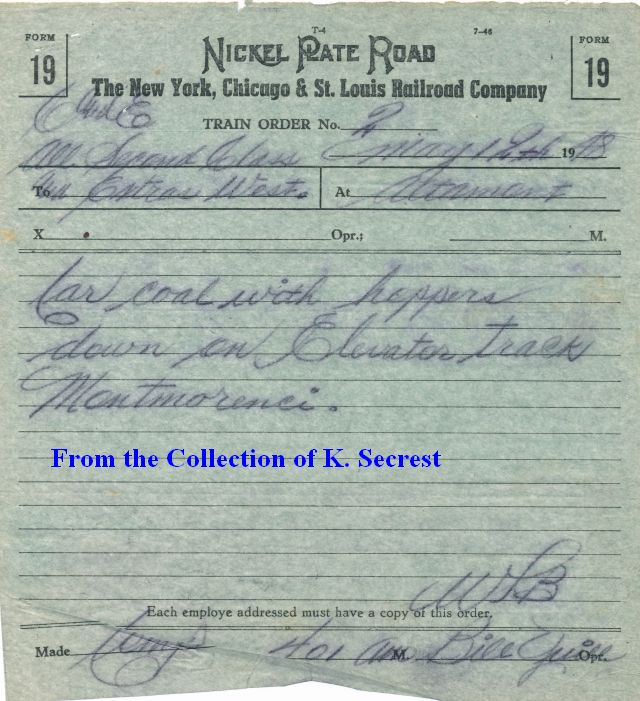 T-4 7-46
FORM 19 NICKEL PLATE ROAD FORM 19
The New York, Chicago & St. Louis Railroad Company
C and E
TRAIN ORDER No. 2
All Second Class May 12th 1948
To Extras West. At Altamont
X Opr.; M.
Car coal with hoppers
down on Elevator track
Montmorenci.
From the Collection of K. Secrest
Each employe addressed must have a copy of this order.
Made Comp 401 am M. Bill Opr.